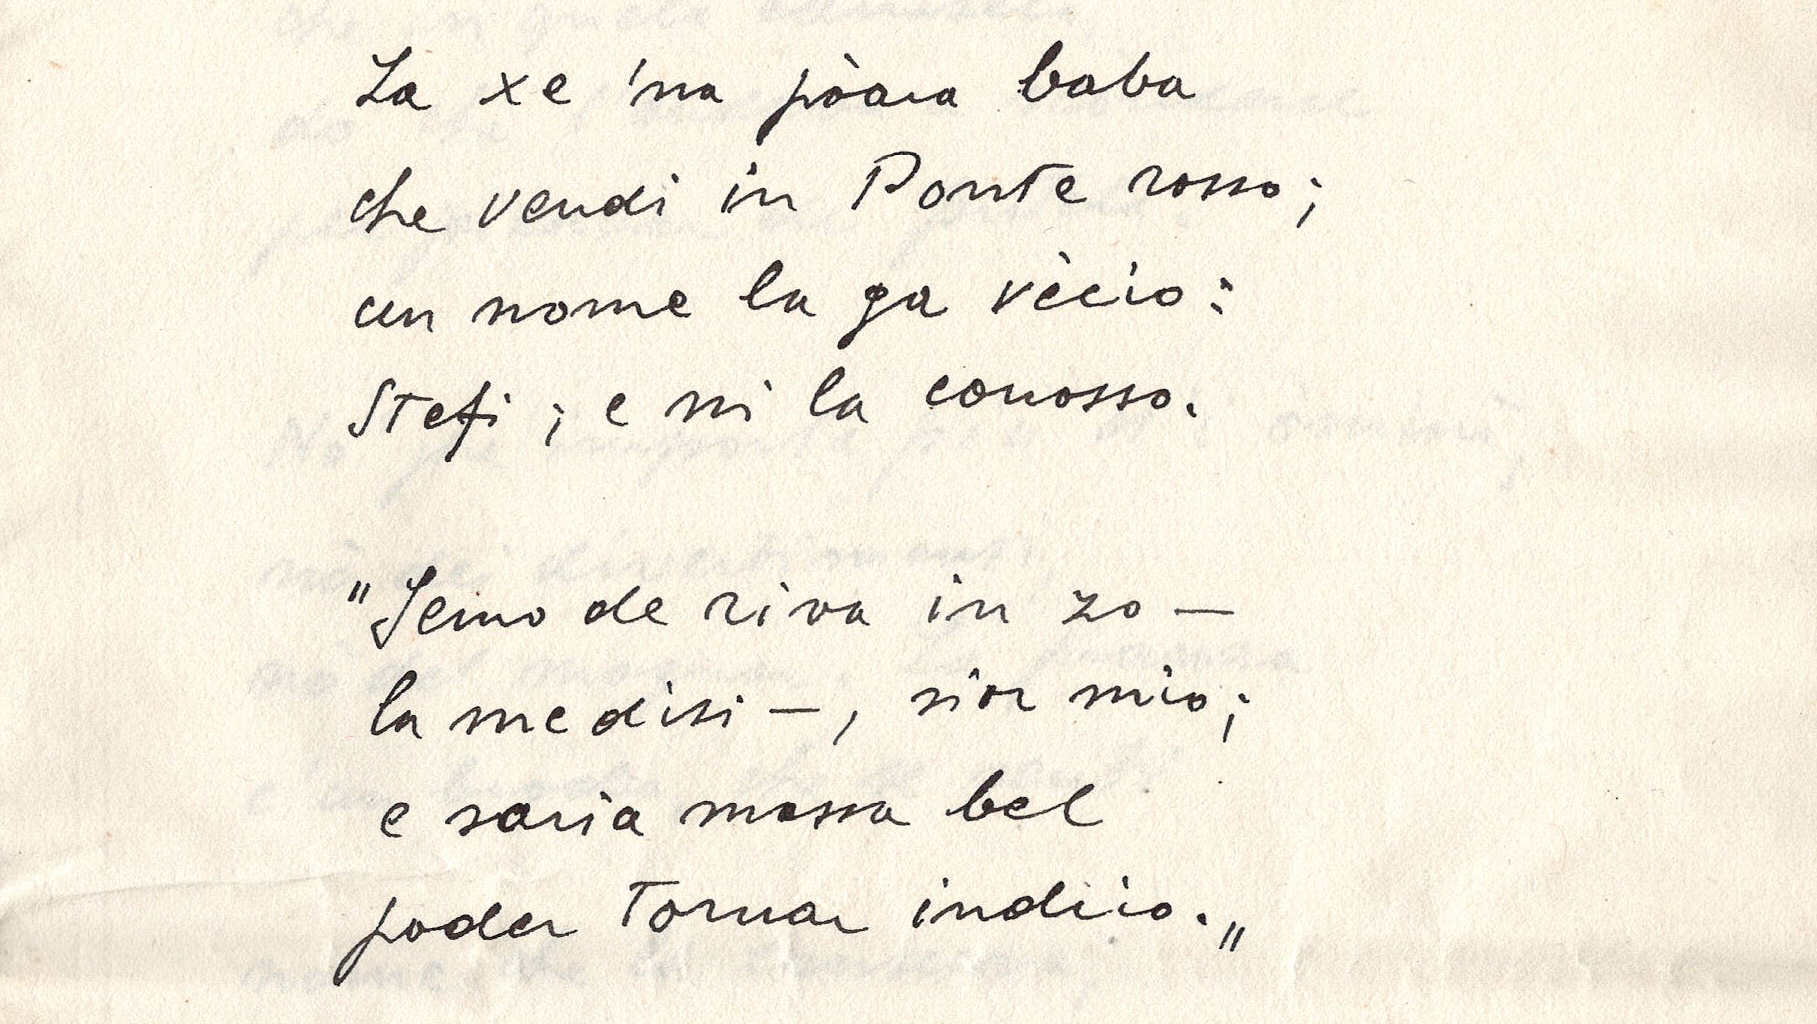 La xe 'na pòara baba
che vendi in Ponte rosso;
un nome la ga vècio:
Stefi; e mi la conosso.
"Semo de riva in zo —
la me disi —, sior mio;
e saria massa bel
poder tornar indrio."